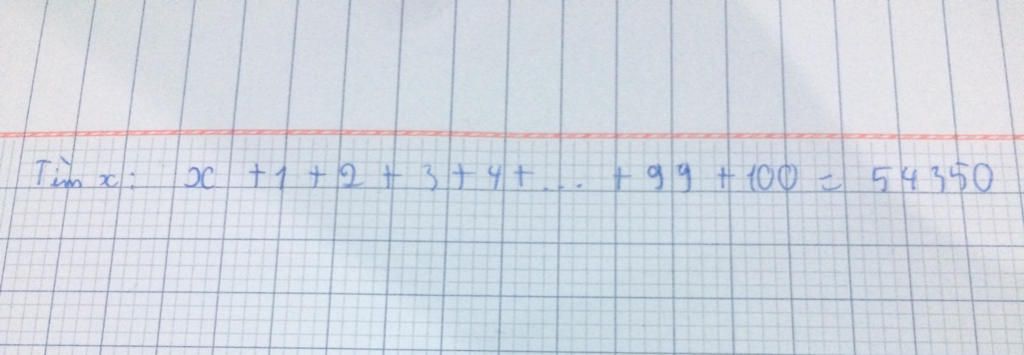 Tìm x: x + 1 + 2 + 3 + 4 + ... + 99 + 100 = 54350